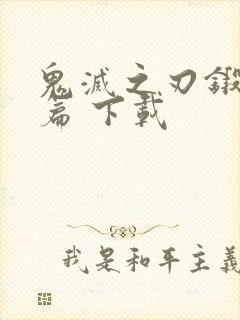 鬼滅之刃鍛
篇 下載
我是和平主義